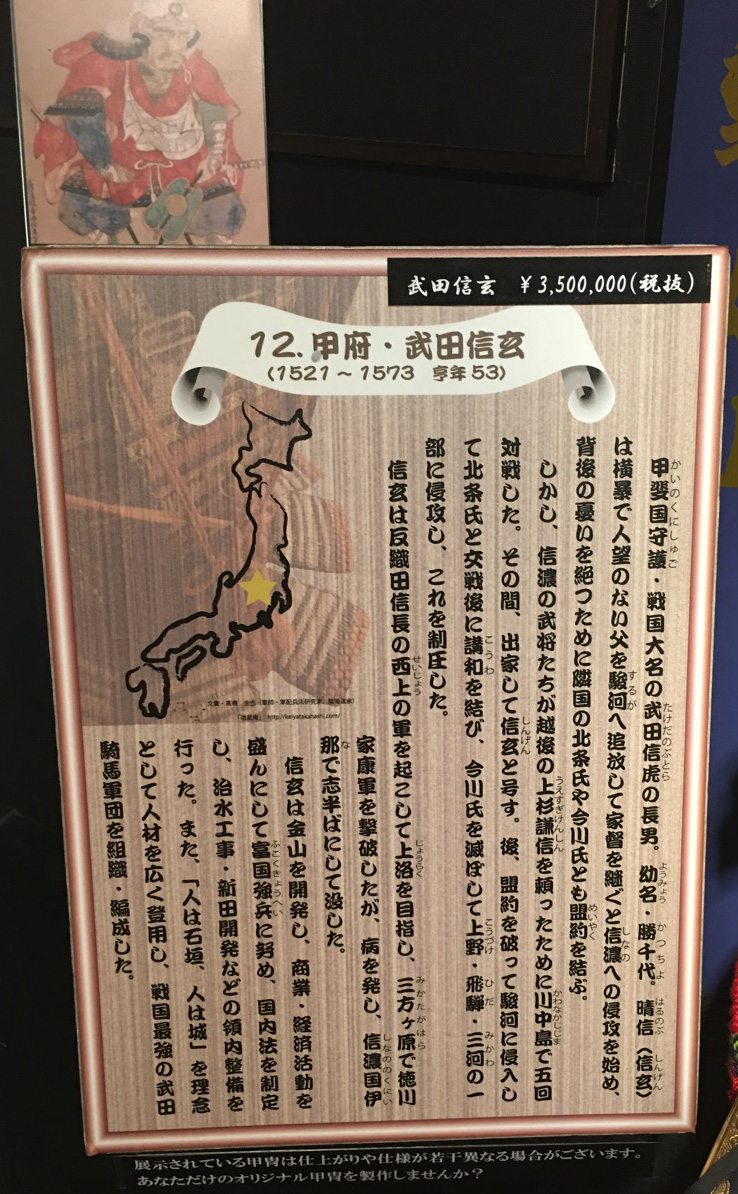 武田信玄 ¥3,500,000(税抜)
12.甲府・武田信玄
(1521～1573 享年53)
甲斐国守護・戦国大名の武田信虎の長男。幼名・勝千代。晴信(信玄)
は横暴で人望のない父を駿河へ追放して家督を継ぐと信濃への侵攻を始め、
背後の憂いを絶つために隣国の北条氏や今川氏とも盟約を結ぶ。
しかし、信濃の武将たちが越後の上杉謙信を頼ったために川中島で五回
対戦した。その間、出家して信玄と号す。後、盟約を破って駿河に侵入し
て北条氏と交戦後に講和を結び、今川氏を滅ぼして上野・飛騨・三河の一
部に侵攻し、これを制圧した。
信玄は反織田信長の西上の軍を起こして上洛を目指し、三方ヶ原で徳川
家康軍を撃破したが、病を発し、信濃国伊
那で志半ばにして没した。
信玄は金山を開発し、商業・経済活動を
盛んにして富国強兵に努め、国内法を制定
し、治水工事・新田開発などの領内整備を
行った。また、「人は石垣、人は城」を理念
として人材を広く登用し、戦国最強の武田
騎馬軍団を組織・編成した。
http://keiyatakahashi.com/
展示されている甲冑は仕上がりや仕様が若干異なる場合がございます。
あなただけのオリジナル甲冑を製作しませんか？